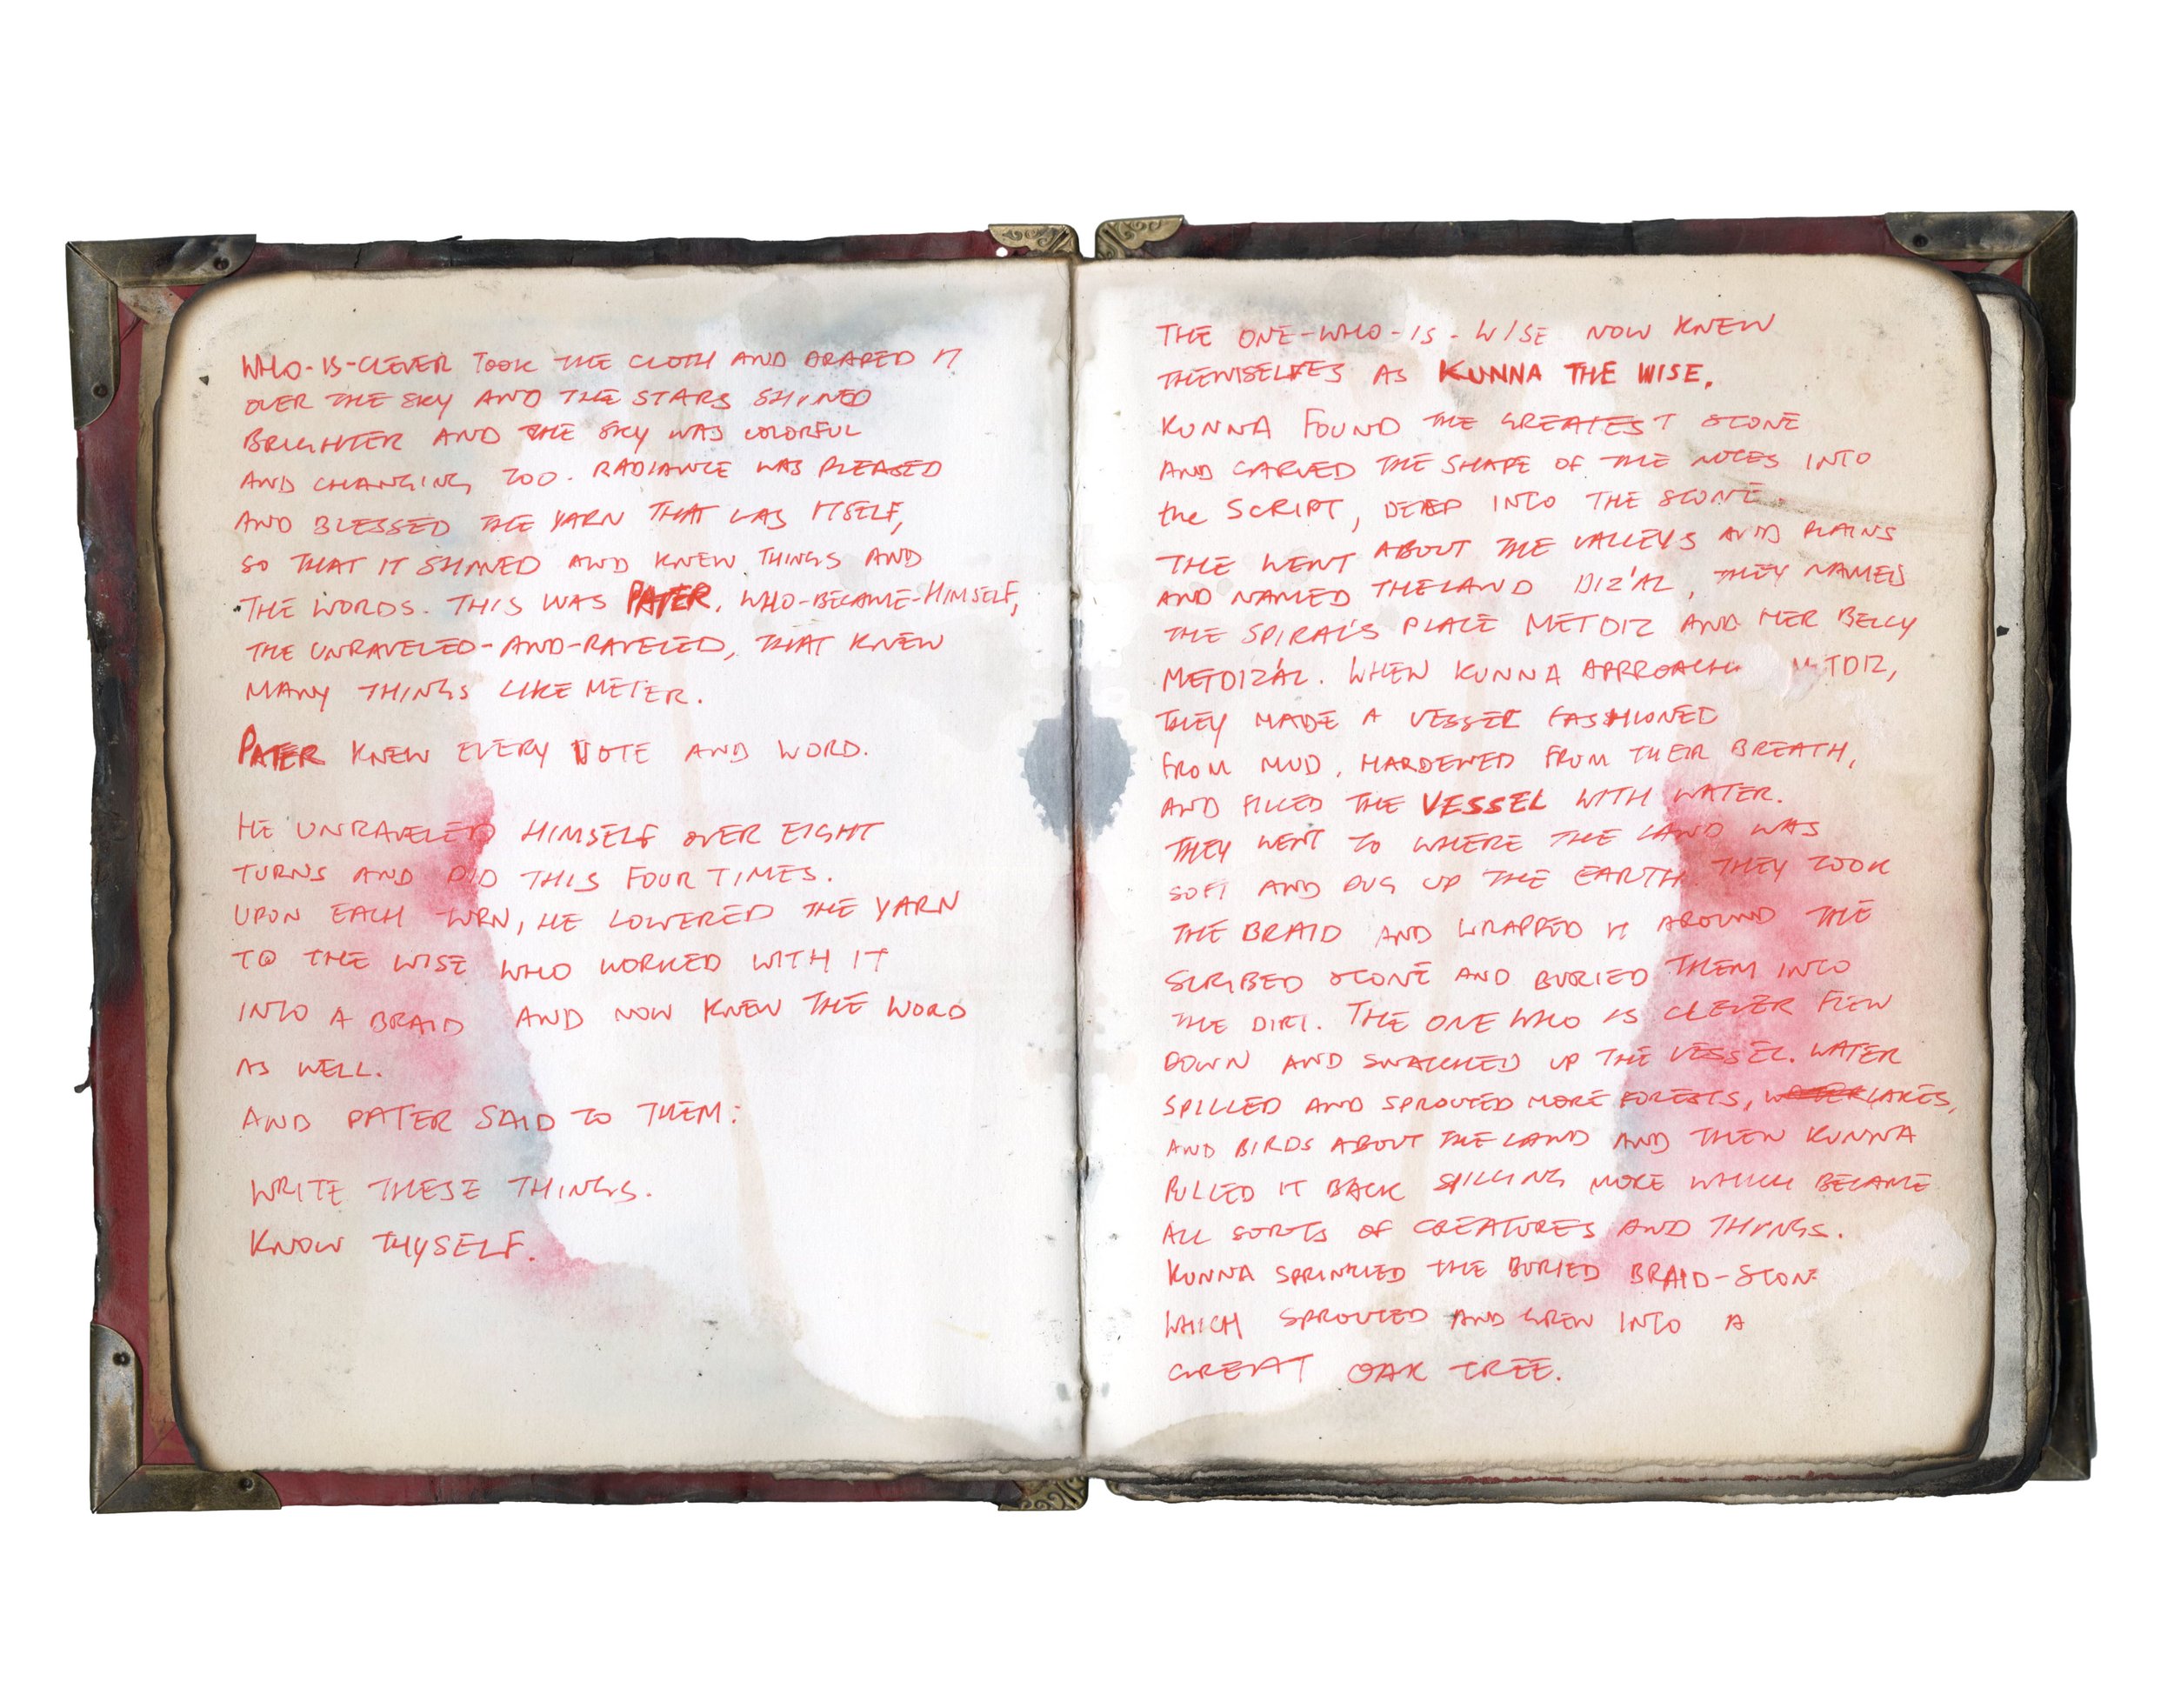 WHO-IS-CLEVER TOOK THE CLOTH AND DRAPED IT
OVER THE SKY AND THE STARS SHINED
BRIGHTER AND THE SKY WAS COLORFUL
AND CHANGING TOO. RADIANCE WAS PLEASED
AND BLESSED THE YARN THAT WAS ITSELF,
SO THAT IT SHINED AND KNEW THINGS AND
THE WORDS. THIS WAS PATER, WHO-BECAME-HIMSELF,
THE UNRAVELED-AND-RAVELED, THAT KNEW
MANY THINGS LIKE METER.
PATER KNEW EVERY NOTE AND WORD.
HE UNRAVELED HIMSELF OVER EIGHT
TURNS AND DID THIS FOUR TIMES.
UPON EACH TURN, HE LOWERED THE YARN
TO THE WISE WHO WORKED WITH IT
INTO A BRAID AND NOW KNEW THE WORD
AS WELL.
AND PATER SAID TO THEM:
WRITE THESE THINGS.
KNOW THYSELF.
THE ONE-WHO-IS-WISE NOW KNEW
THEMSELVES AS KUNNA THE WISE.
KUNNA FOUND THE GREATEST STONE
AND CARVED THE SHAPE OF THE NOTES INTO
the SCRIPT, DEEP INTO THE STONE.
THE WENT ABOUT THE VALLEYS AND PLAINS
AND NAMED THE LAND DIZ'AL, THEY NAMED
THE SPIRAL'S PLACE METDIZ AND HER BELLY
METDIZ'AL. WHEN KUNNA APPROACH METDIZ,
THEY MADE A VESSEL FASHIONED
FROM MUD, HARDENED FROM THEIR BREATH,
AND FILLED THE VESSEL WITH WATER.
THEY WENT TO WHERE THE LAND WAS
SOFT AND DUG UP THE EARTH. THEY TOOK
THE BRAID AND WRAPPED IT AROUND THE
SCRIBED STONE AND BURIED THEM INTO
THE DIRT. THE ONE WHO IS CLEVER FLEW
DOWN AND SNATCHED UP THE VESSEL. WATER
SPILLED AND SPROUTED MORE FORESTS, LAKES,
AND BIRDS ABOUT THE LAND AND THEN KUNNA
PULLED IT BACK SPILLING MORE WHICH BECAME
ALL SORTS OF CREATURES AND THINGS.
KUNNA SPRINKLED THE BURIED BRAID-STONE
WHICH SPROUTED AND GREW INTO A
GREAT OAK TREE.